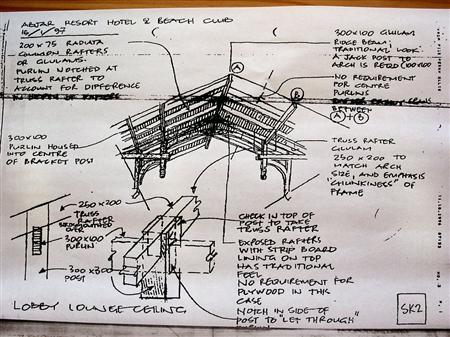 ABJAR RESORT HOTEL & BEACH CLUB
16/1/97
200 x 75 RADIATA
COMMON RAFTERS
OR GLULAMS.
PURLIN NOTCHED AT
TRUSS RAFTER TO
ACCOUNT FOR DIFFERENCE
IN DEPTH OF RAFTERS
300x100 GLULAM
RIDGE BEAM;
'TRADITIONAL' LOOK.
A JACK POST TO
ARCH IS REQD (100x100
NO REQUIREMENT
FOR CENTRE
PURLINS
BETWEEN
A + B
A
B
300x100
PURLIN HOUSED
INTO CENTRE
OF BRACKET POST
TRUSS RAFTER
GLULAM
250 x 200 TO
MATCH ARCH
SIZE, AND EMPHASIS
"CHUNKINESS" OF
FRAME
250 x 200
TRUSS
RAFTER
OVER
300x100
PURLIN
300x300
POST
CHECK IN TOP OF
POST TO TAKE
TRUSS RAFTER
EXPOSED RAFTERS
WITH STRIP BOARD
LINING ON TOP
HAS TRADITIONAL
FEEL
NO REQUIREMENT FOR
PLYWOOD IN THIS
CASE
NOTCH IN SIDE OF
POST TO "LET THROUGH"
LOBBY LOUNGE CEILING
SK2